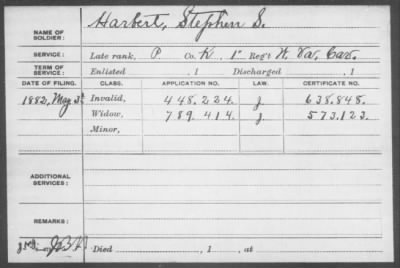 Harbert, Stephen S.
NAME OF SOLDIER:
SERVICE: Late rank, P. Co. K, 1" Reg't W. Va. Cav.
TERM OF SERVICE: Enlisted , 1 Discharged , 1
DATE OF FILING. CLASS. APPLICATION NO. LAW. CERTIFICATE NO.
1882, May 3 Invalid, 448.224. J. 638.848.
Widow, 789.414. J 573.123.
Minor,
ADDITIONAL SERVICES:
REMARKS:
Died , 1 , at